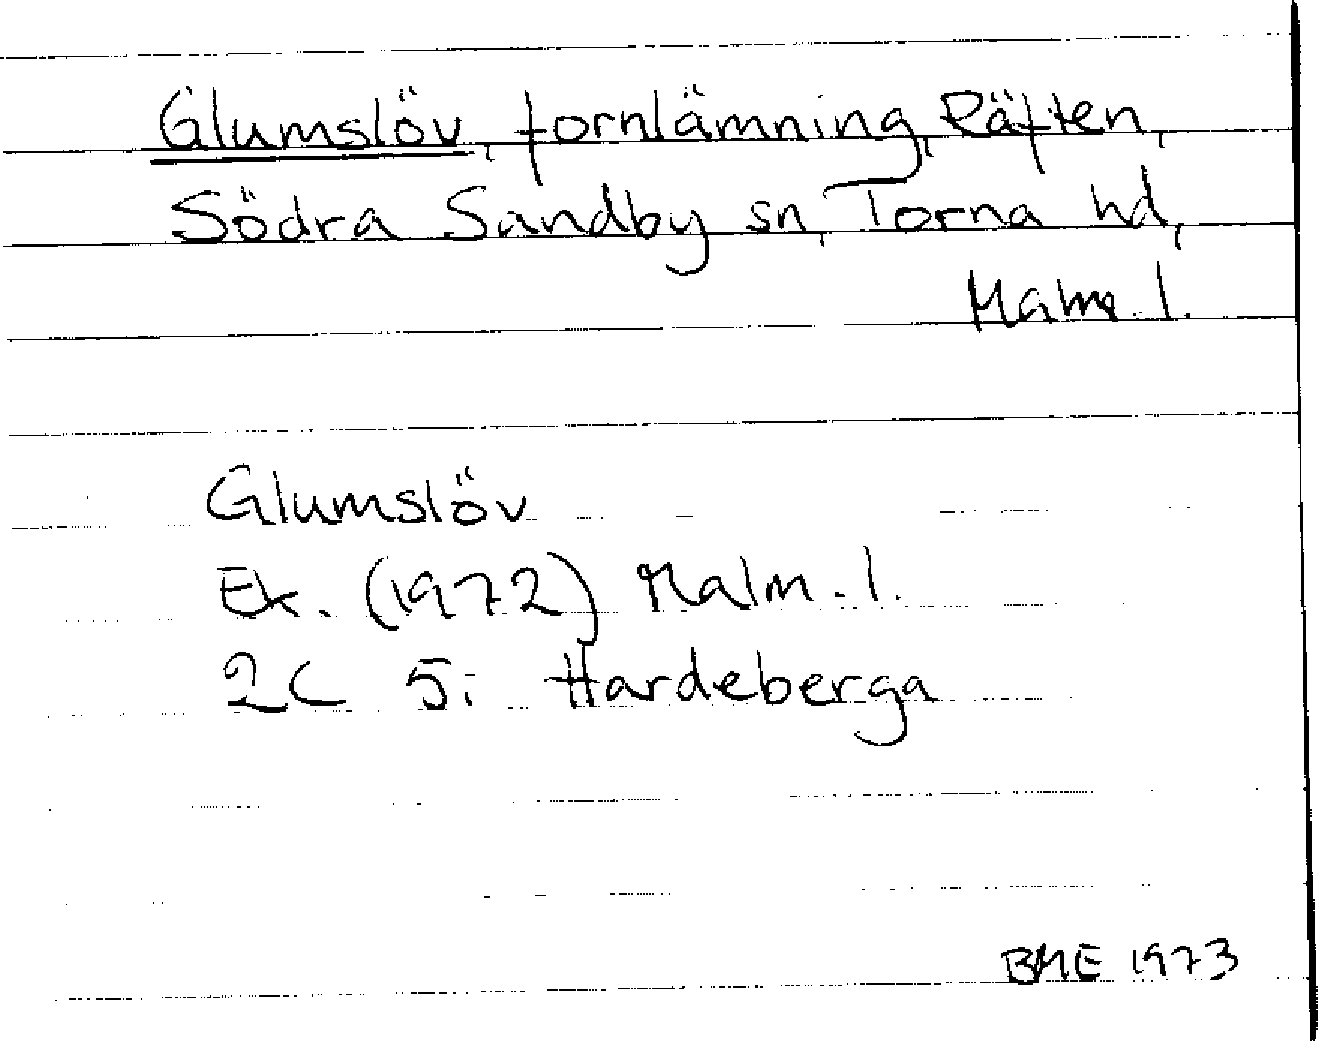 Glumslöv, fornlämning, Räften,
Södra Sandby sn, Torna hd,
Malm. l.
Glumslöv
Ek. (1972) Malm. l.
2C 5i Hardeberga
BME 1973